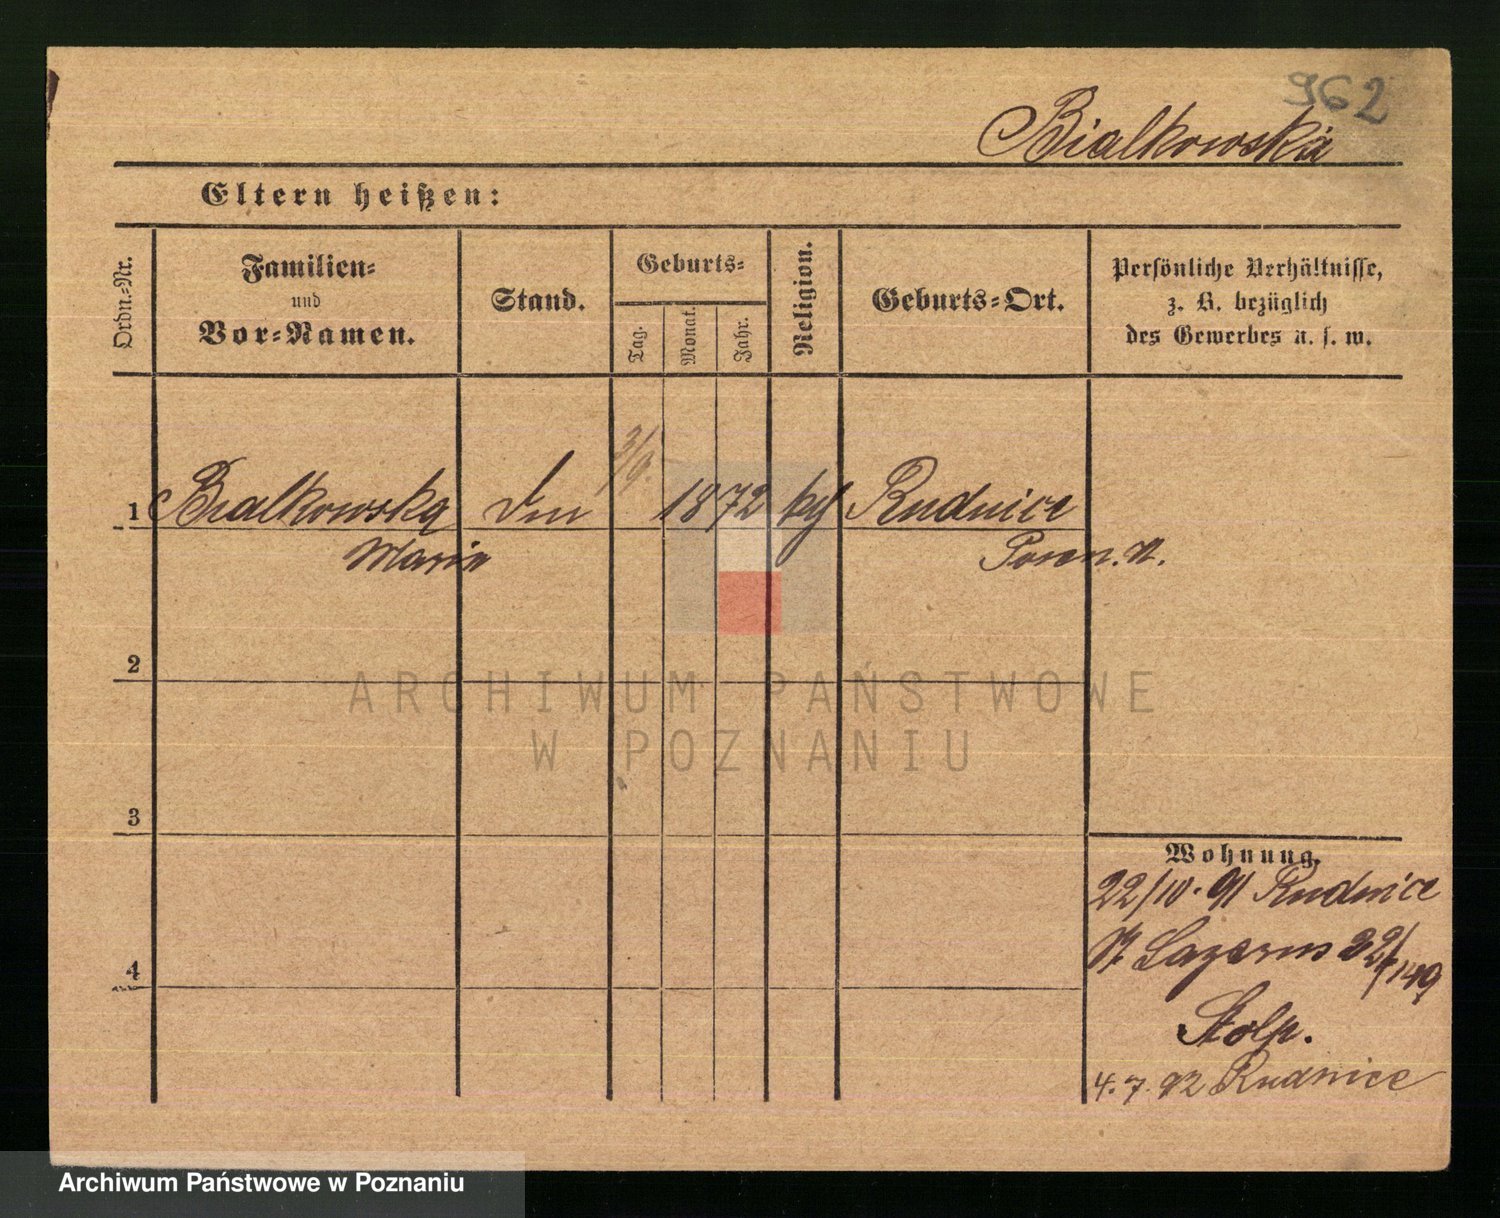 962
Bialkowska
Eltern heißen:
Ordn.-Nr.
Familien-
und
Vor-Namen.
Stand.
Geburts-
Tag.
Monat.
Jahr.
Religion.
Geburts-Ort.
Persönliche Verhältnisse,
z. B. bezüglich
des Gewerbes u. s. w.
3/9.
1 Bialkowska 1872 Rudnice
Maria Posen.
2
ARCHIWUM PAŃSTWOWE
W POZNANIU
3
Wohnung.
22/10. 91 Rudnice
St Lazarus 22/
4
Stolp.
4. 7. 92 Rudnice
Archiwum Państwowe w Poznaniu